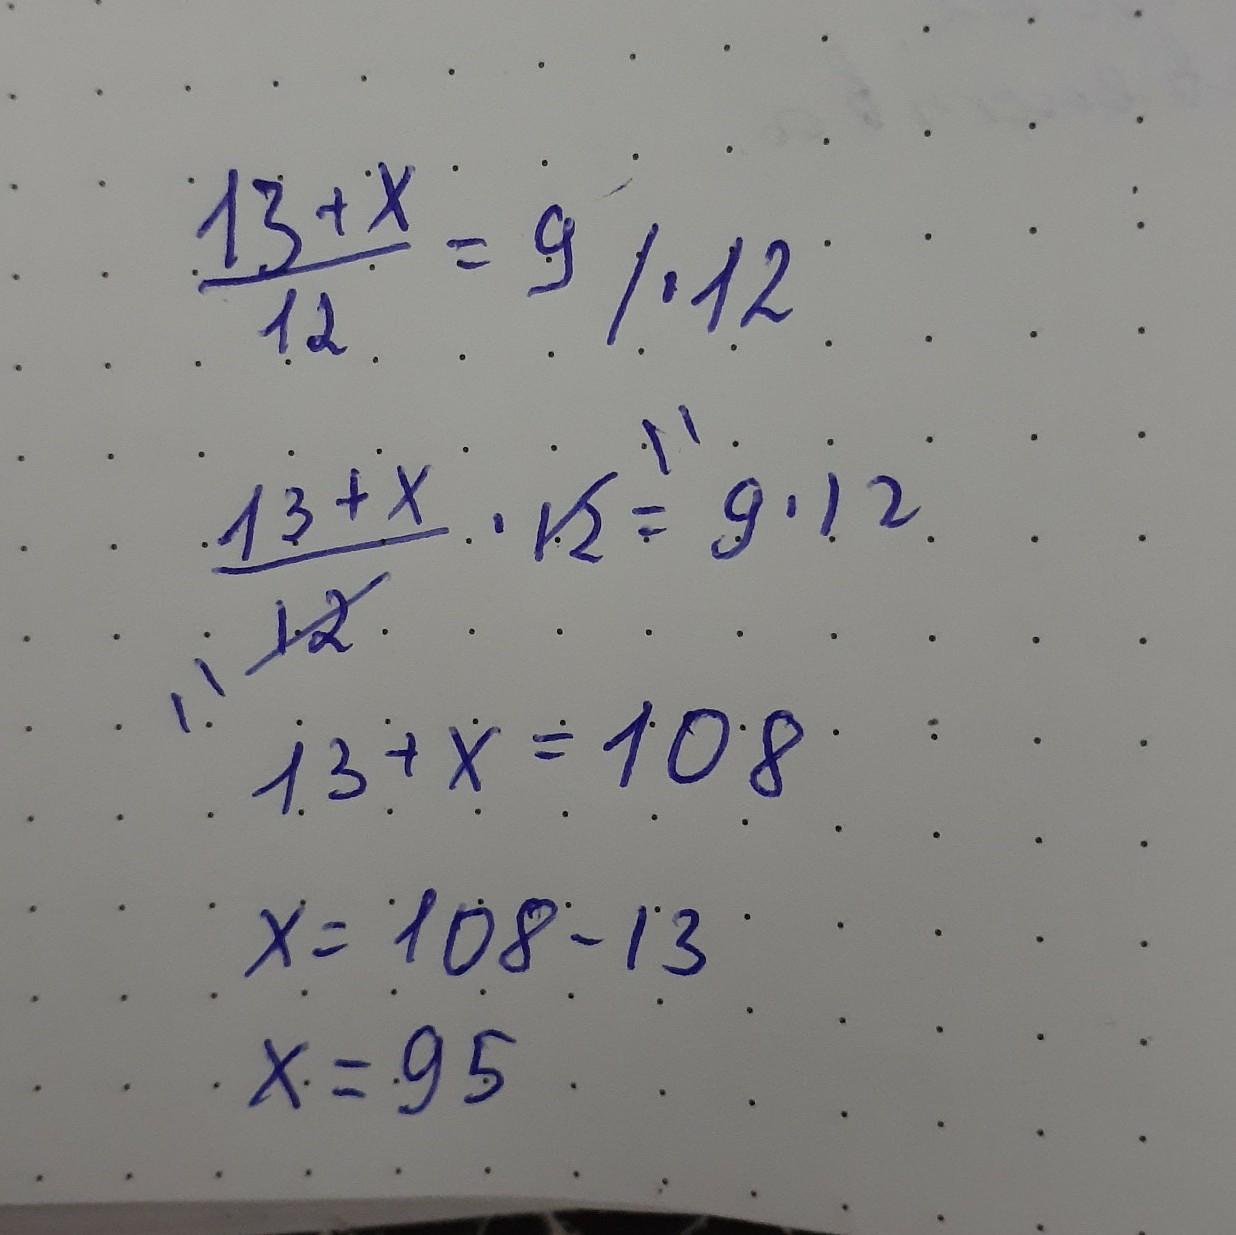 13+x/12 = 9 /·12
13+x/12 · 12 = 9·12
13+x = 108
x = 108-13
x = 95